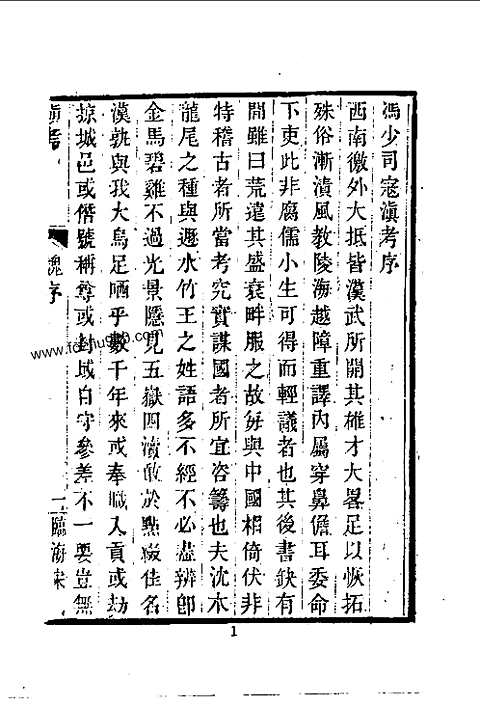 馮少司寇滇考序
西南徼外大抵皆漢武所開其雄才大畧足以恢拓
殊俗漸漬風教陵海越障重譯內屬穿鼻儋耳委命
下吏此非腐儒小生可得而輕議者也其後書缺有
間雖曰荒遠其盛衰畔服之故每與中國相倚伏非
特稽古者所當考究實謀國者所宜咨籌也夫沈木
龍尾之種與遯水竹王之姓語多不經不必盡辨卽
金馬碧雞不過光景隱見五嶽四瀆敢於點綴佳名
漢孰與我大烏足哂乎數千年來或奉職入貢或劫
掠城邑或僭號稱尊或封域自守參差不一要豈無
滇考
序
一臨海宋
1